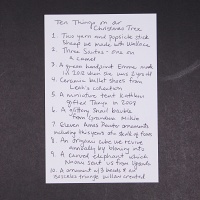 Ten Things on our
Christmas Tree
1. Two yarn and popsicle stick
Sheep we made with Wallace
2. Three Santas - one on
a camel
3. A green handprint Emme made
in 2012 when she was 2 yrs old
4. Ceramic ballet shoes from
Leah's collection
5. A miniature tent Kathleen
gifted Tanya in 2008
6. A glittery Snail bauble
from Grandma Milkie
7. Eleven Anna Panter ornaments
including this year's
8. An origami cube we revive
annually by blowing into
9. A carved elephant which
Naomi sent us from Uganda
10. A ornament w/ 3 beads &
isosceles triangle